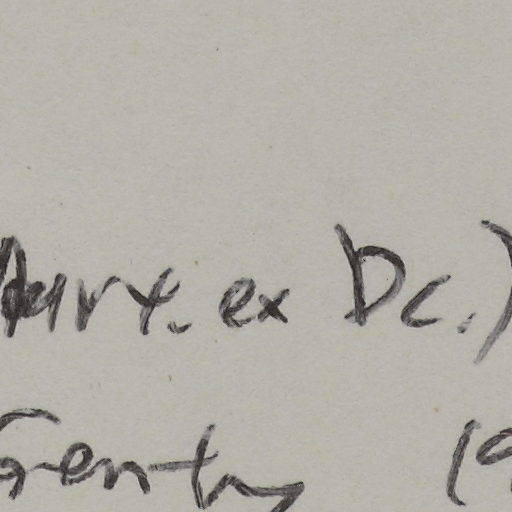 Murr. ex Dc.)
Gentry (9